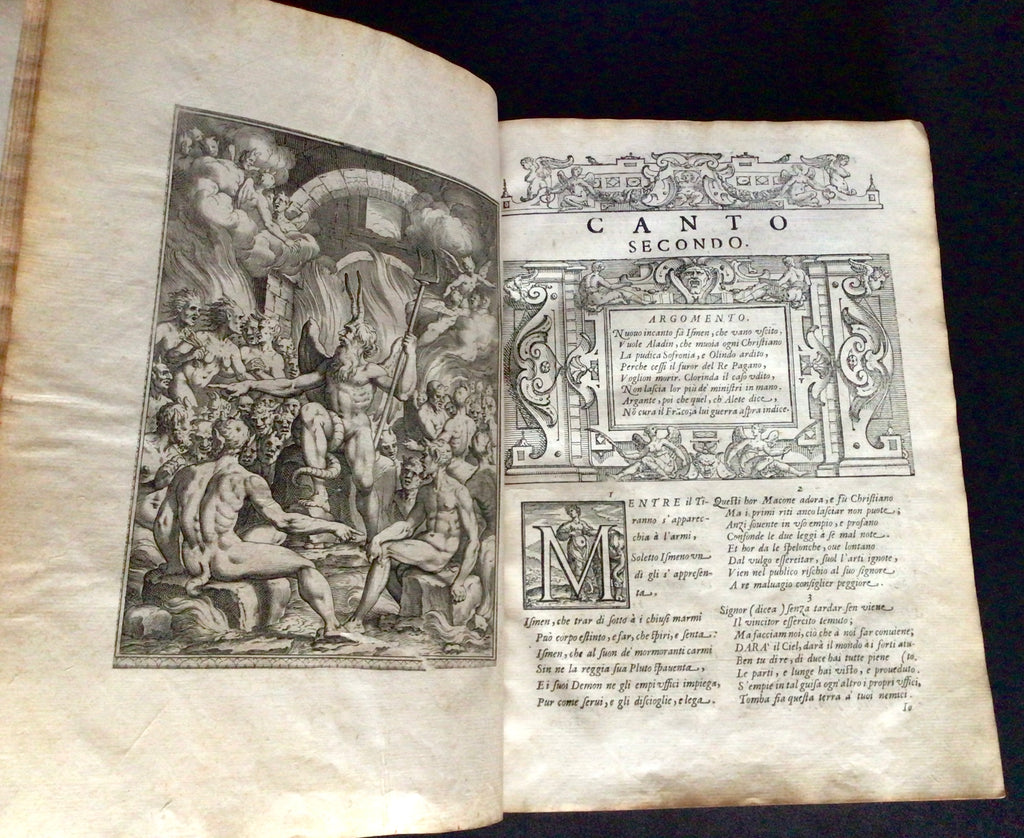 CANTO
SECONDO.
ARGOMENTO.
Nuouo incanto fà Ismen, che vano vscito,
Vuole Aladin, che muoia ogni Christiano
La pudica Sofronia, e Olindo ardito,
Perche cessi il furor del Re Pagano,
Voglion morir. Clorinda il caso vdito,
Non lascia lor più de' ministri in mano.
Argante, poi che quel, ch'Alete dice,
Nõ cura il Frãco; a lui guerra aspra indice.
1
MENTRE il Ti-
ranno s'apparec-
chia à l'armi,
Soletto Ismeno vn
dì gli s'appresen-
ta,
Ismen, che trar di sotto à i chiusi marmi
Può corpo estinto, e far, che spiri, e senta:
Ismen, che al suon de' mormoranti carmi
Sin ne la reggia sua Pluto spauenta,
E i suoi Demon ne gli empi vffici impiega,
Pur come serui, e gli discioglie, e lega.
2
Questi hor Macone adora, e fù Christiano
Ma i primi riti anco lasciar non puote;
Anzi souente in vso empio, e profano
Confonde le due leggi à se mal note.
Et hor da le spelonche, oue lontano
Dal vulgo essercitar, suol l'arti ignote,
Vien nel publico rischio al suo signore
A re maluagio consiglier peggiore.
3
Signor (dicea) senza tardar sen viene
Il vincitor essercito temuto;
Ma facciam noi, ciò che a noi far conuiene;
DARA' il Ciel, darà il mondo ai forti aiu-
Ben tu di re, di duce hai tutte piene (to.
Le parti, e lunge hai visto, e proueduto.
S'empie in tal guisa ogn'altro i propri vffici,
Tomba fia questa terra a' tuoi nemici.
Io